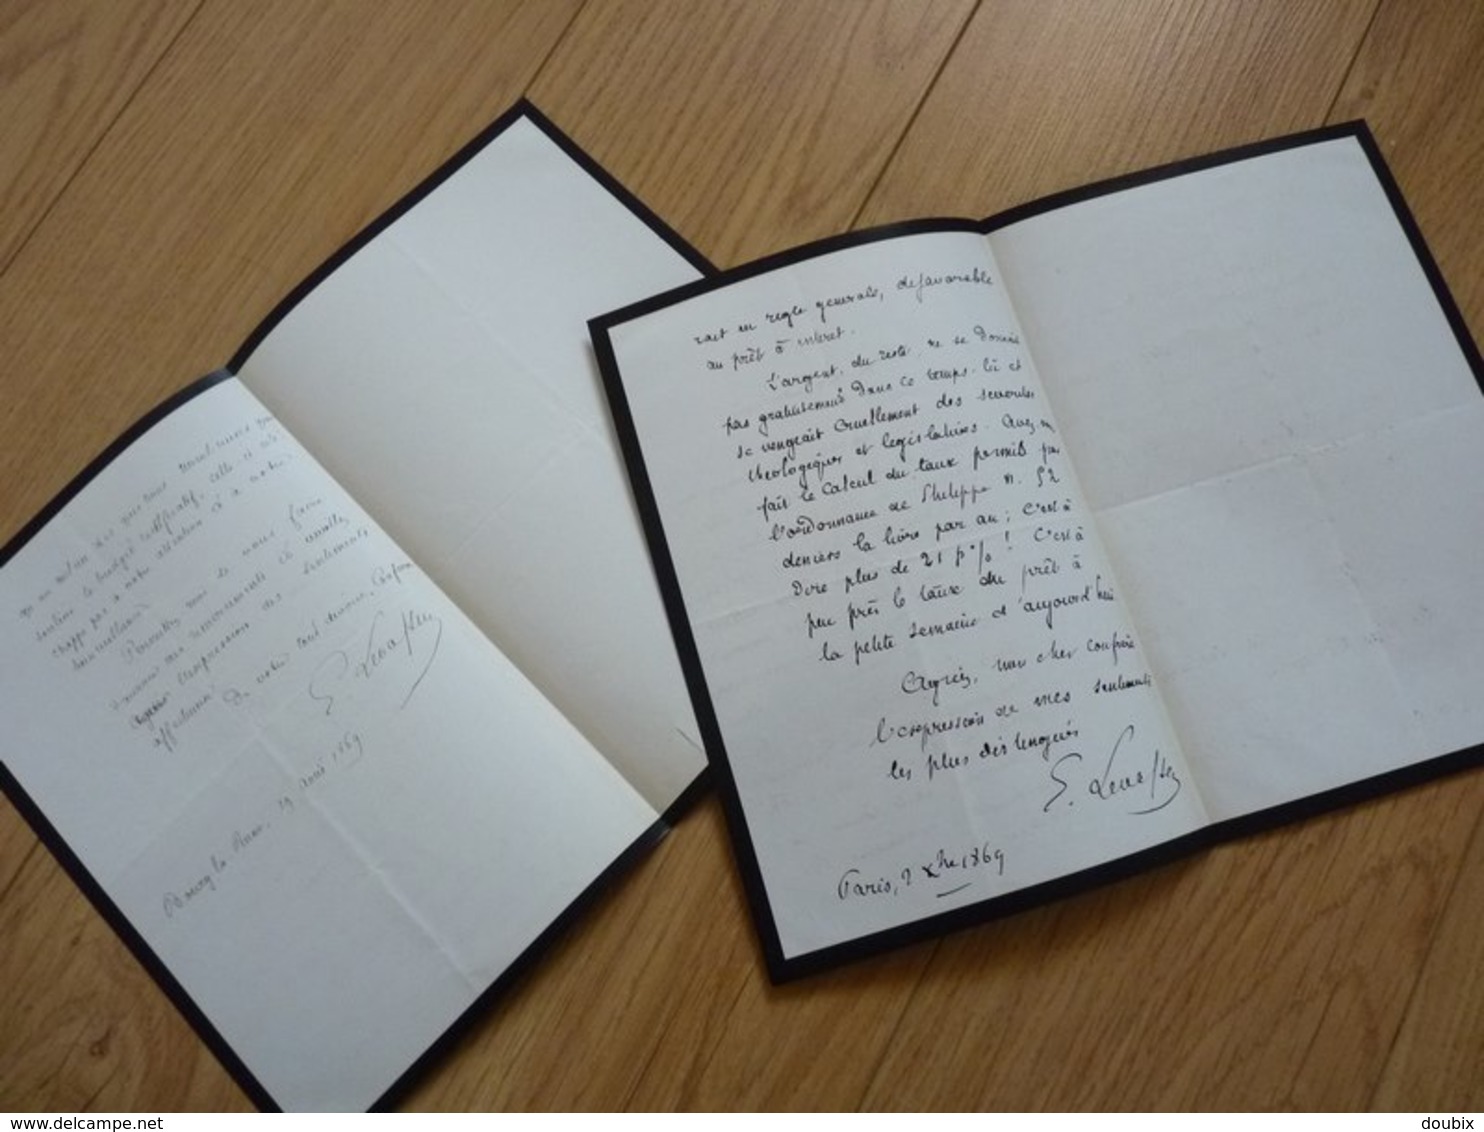 qu'un
soutien le budget rectificatif. Celle-ci
chappe pas à notre attention & à notre
bienveillance
Permettez moi de vous faire
mes remerciments et veuillez
agréer l'expression des sentiments
affectueux De votre tout dévoué Confrère
E. Levasseur
Bourg la Reine. 29 août 1869
rait en règle generale, defavorable
au prêt à interet.
L'argent, du reste, ne se donnait
pas gratuitement dans ce temps-là et
se vengeait cruellement des
théologiques et législatives. Avez vous
fait le calcul du taux permis par
l'ordonnance de Philippe
deniers la livre par an ; C'est à
Dire plus de 21 p % ! C'est à
peu près le taux du prêt à
la petite semaine d'aujourd'hui
Agréez, mon cher confrère
l'expression de mes sentiments
les plus distingués
E. Levasseur
Paris, 2 Xbre 1869
www.delcampe.net
doubix